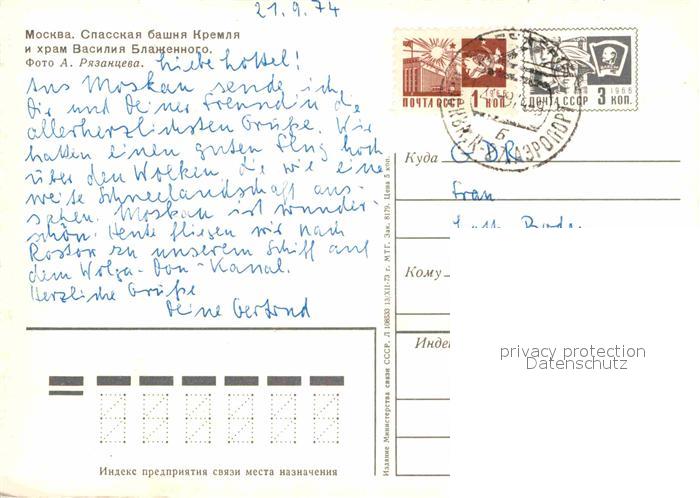 21.9.74
Москва. Спасская башня Кремля
и храм Василия Блаженного.
Фото А. Рязанцева.
Liebe Lottel!
Aus Moskau sende ich
Dir und Deiner Freundin die
allerherzlichsten Grüße. Wir
hatten einen guten Flug hoch
über den Wolken, die wie eine
weiße Schneelandschaft aus-
sahen. Moskau ist wunder-
schön. Heute fliegen wir nach
Rostow zu unserem Schiff auf
dem Wolga-Don-Kanal.
Herzliche Grüße
Deine Gertrud
Индекс предприятия связи места назначения
Издание Министерства связи СССР. Л 106333 13/XII-73 г. МТГ. Зак. 8179. Цена 5 коп.
1966
ПОЧТА СССР 1 КОП.
1966
ПОЧТА СССР 3 КОП.
АЭРОПОРТ
Б
Куда DDR
Frau
Кому
Инде
privacy protection
Datenschutz